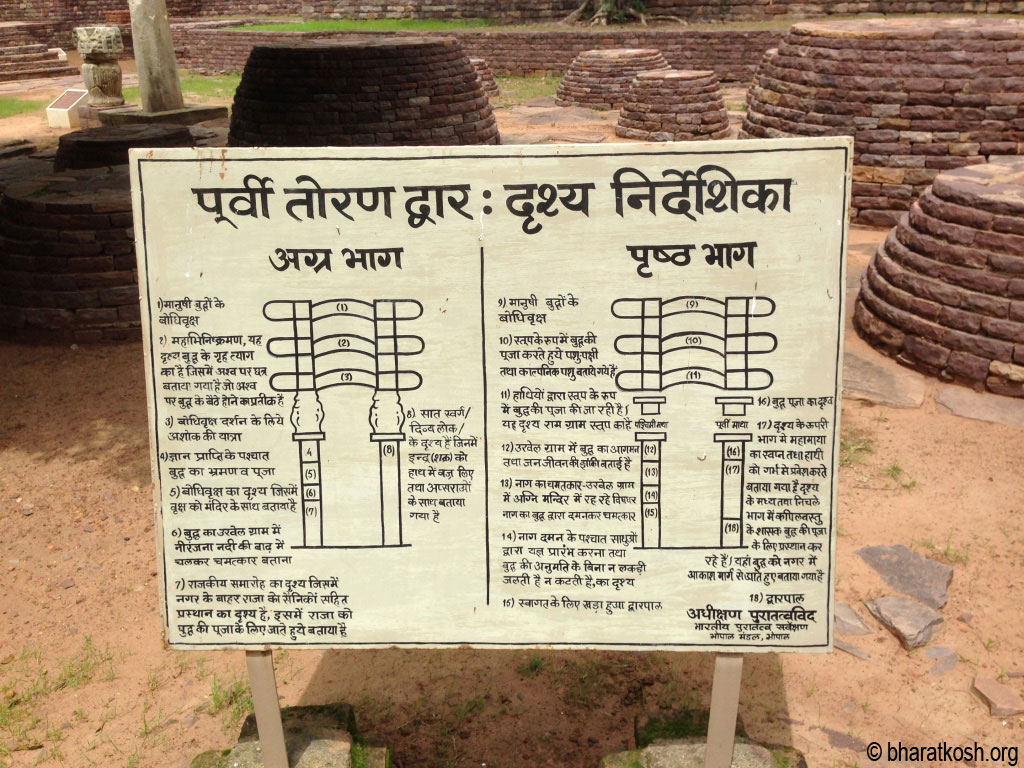 पूर्वी तोरण द्वार : दृश्य निर्देशिका
अग्र भाग
1) मानुषी बुद्धों के
बोधिवृक्ष
2) महाभिनिष्क्रमण, यह
दृश्य बुद्ध के गृह त्याग
का है जिसमें अश्व पर छत्र
बताया गया है जो अश्व
पर बुद्ध के बैठे होने का प्रतीक है
3) बोधिवृक्ष दर्शन के लिये
अशोक की यात्रा
4) ज्ञान प्राप्ति के पश्चात
बुद्ध का भ्रमण व पूजा
5) बोधिवृक्ष का दृश्य जिसमें
वृक्ष को मंदिर के साथ बताया है
6) बुद्ध का उरवेल ग्राम में
नीरंजना नदी की बाढ़ में
चलकर चमत्कार बताना
7) राजकीय समारोह का दृश्य जिसमें
नगर के बाहर राजा को सैनिकों सहित
प्रस्थान का दृश्य है, इसमें राजा को
बुद्ध की पूजा के लिए जाते हुये बताया है
(1)
(2)
(3)
4
(5)
(6)
(7)
(8)
8) सात स्वर्ग/
दिव्य लोक/
के दृश्य है जिनमें
इन्द्र (शक्र) को
हाथ में बज्र लिए
तथा अप्सराओं
के साथ बताया
गया है
पृष्ठ भाग
9) मानुषी बुद्धों के
बोधिवृक्ष
10) स्तूप के रूप में बुद्ध की
पूजा करते हुये पशु-पक्षी
तथा काल्पनिक पशु बताये गये हैं
11) हाथियों द्वारा स्तूप के रूप
में बुद्ध की पूजा की जा रही है।
यह दृश्य राम ग्राम स्तूप का है
12) उरवेल ग्राम में बुद्ध का आगमन
तथा जनजीवन की झांकी बताई है
13) नाग का चमत्कार-उरवेल ग्राम
में अग्नि मन्दिर में रह रहे विषधर
नाग का बुद्ध द्वारा दमनकर चमत्कार
14) नाग दमन के पश्चात साधुओं
द्वारा यज्ञ प्रारंभ करना तथा
बुद्ध की अनुमति के बिना न लकड़ी
जलती है न कटती है, का दृश्य
15) स्वागत के लिए खड़ा हुआ द्वारपाल
(9)
(10)
(11)
पश्चिमी माथा
पूर्वी माथा
(12)
(13)
(14)
(15)
(16)
(17)
(18)
16) बुद्ध पूजा का दृश्य
17) दृश्य के ऊपरी
भाग में महामाया
का स्वप्न तथा हाथी
को गर्भ से प्रवेश करते
बताया गया है दृश्य
के मध्य तथा निचले
भाग में कपिलवस्तु
के शासक बुद्ध की पूजा
के लिए प्रस्थान कर
रहे हैं। यहां बुद्ध को नगर में
आकाश मार्ग से आते हुए बताया गया है
18) द्वारपाल
अधीक्षण पुरातत्वविद
भारतीय पुरातत्व सर्वेक्षण
भोपाल मंडल, भोपाल
© bharatkosh.org